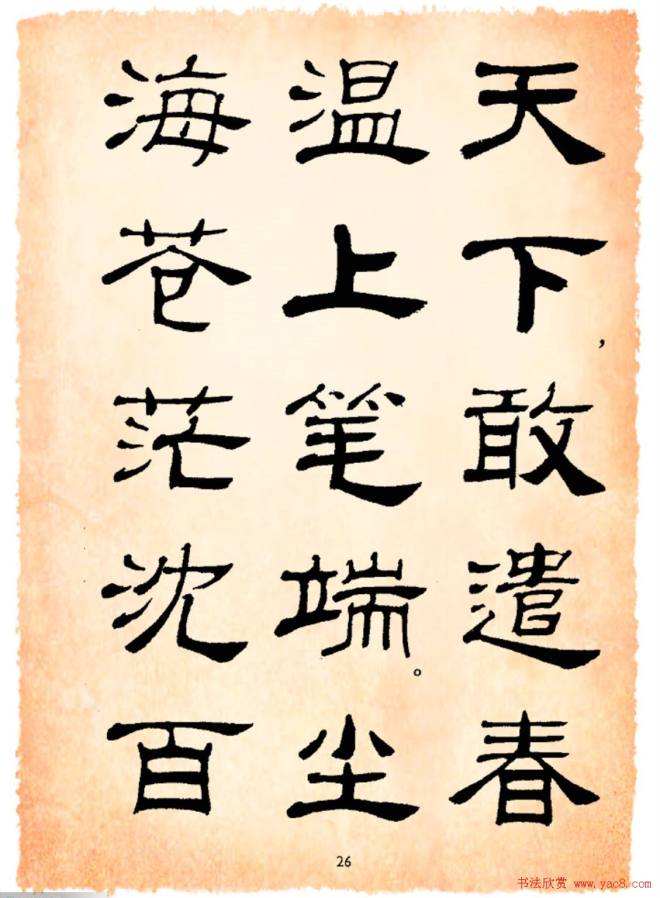 天下，敢遣春
温上笔端。尘
海苍茫沈百
26
书法欣赏 www.yac8.com